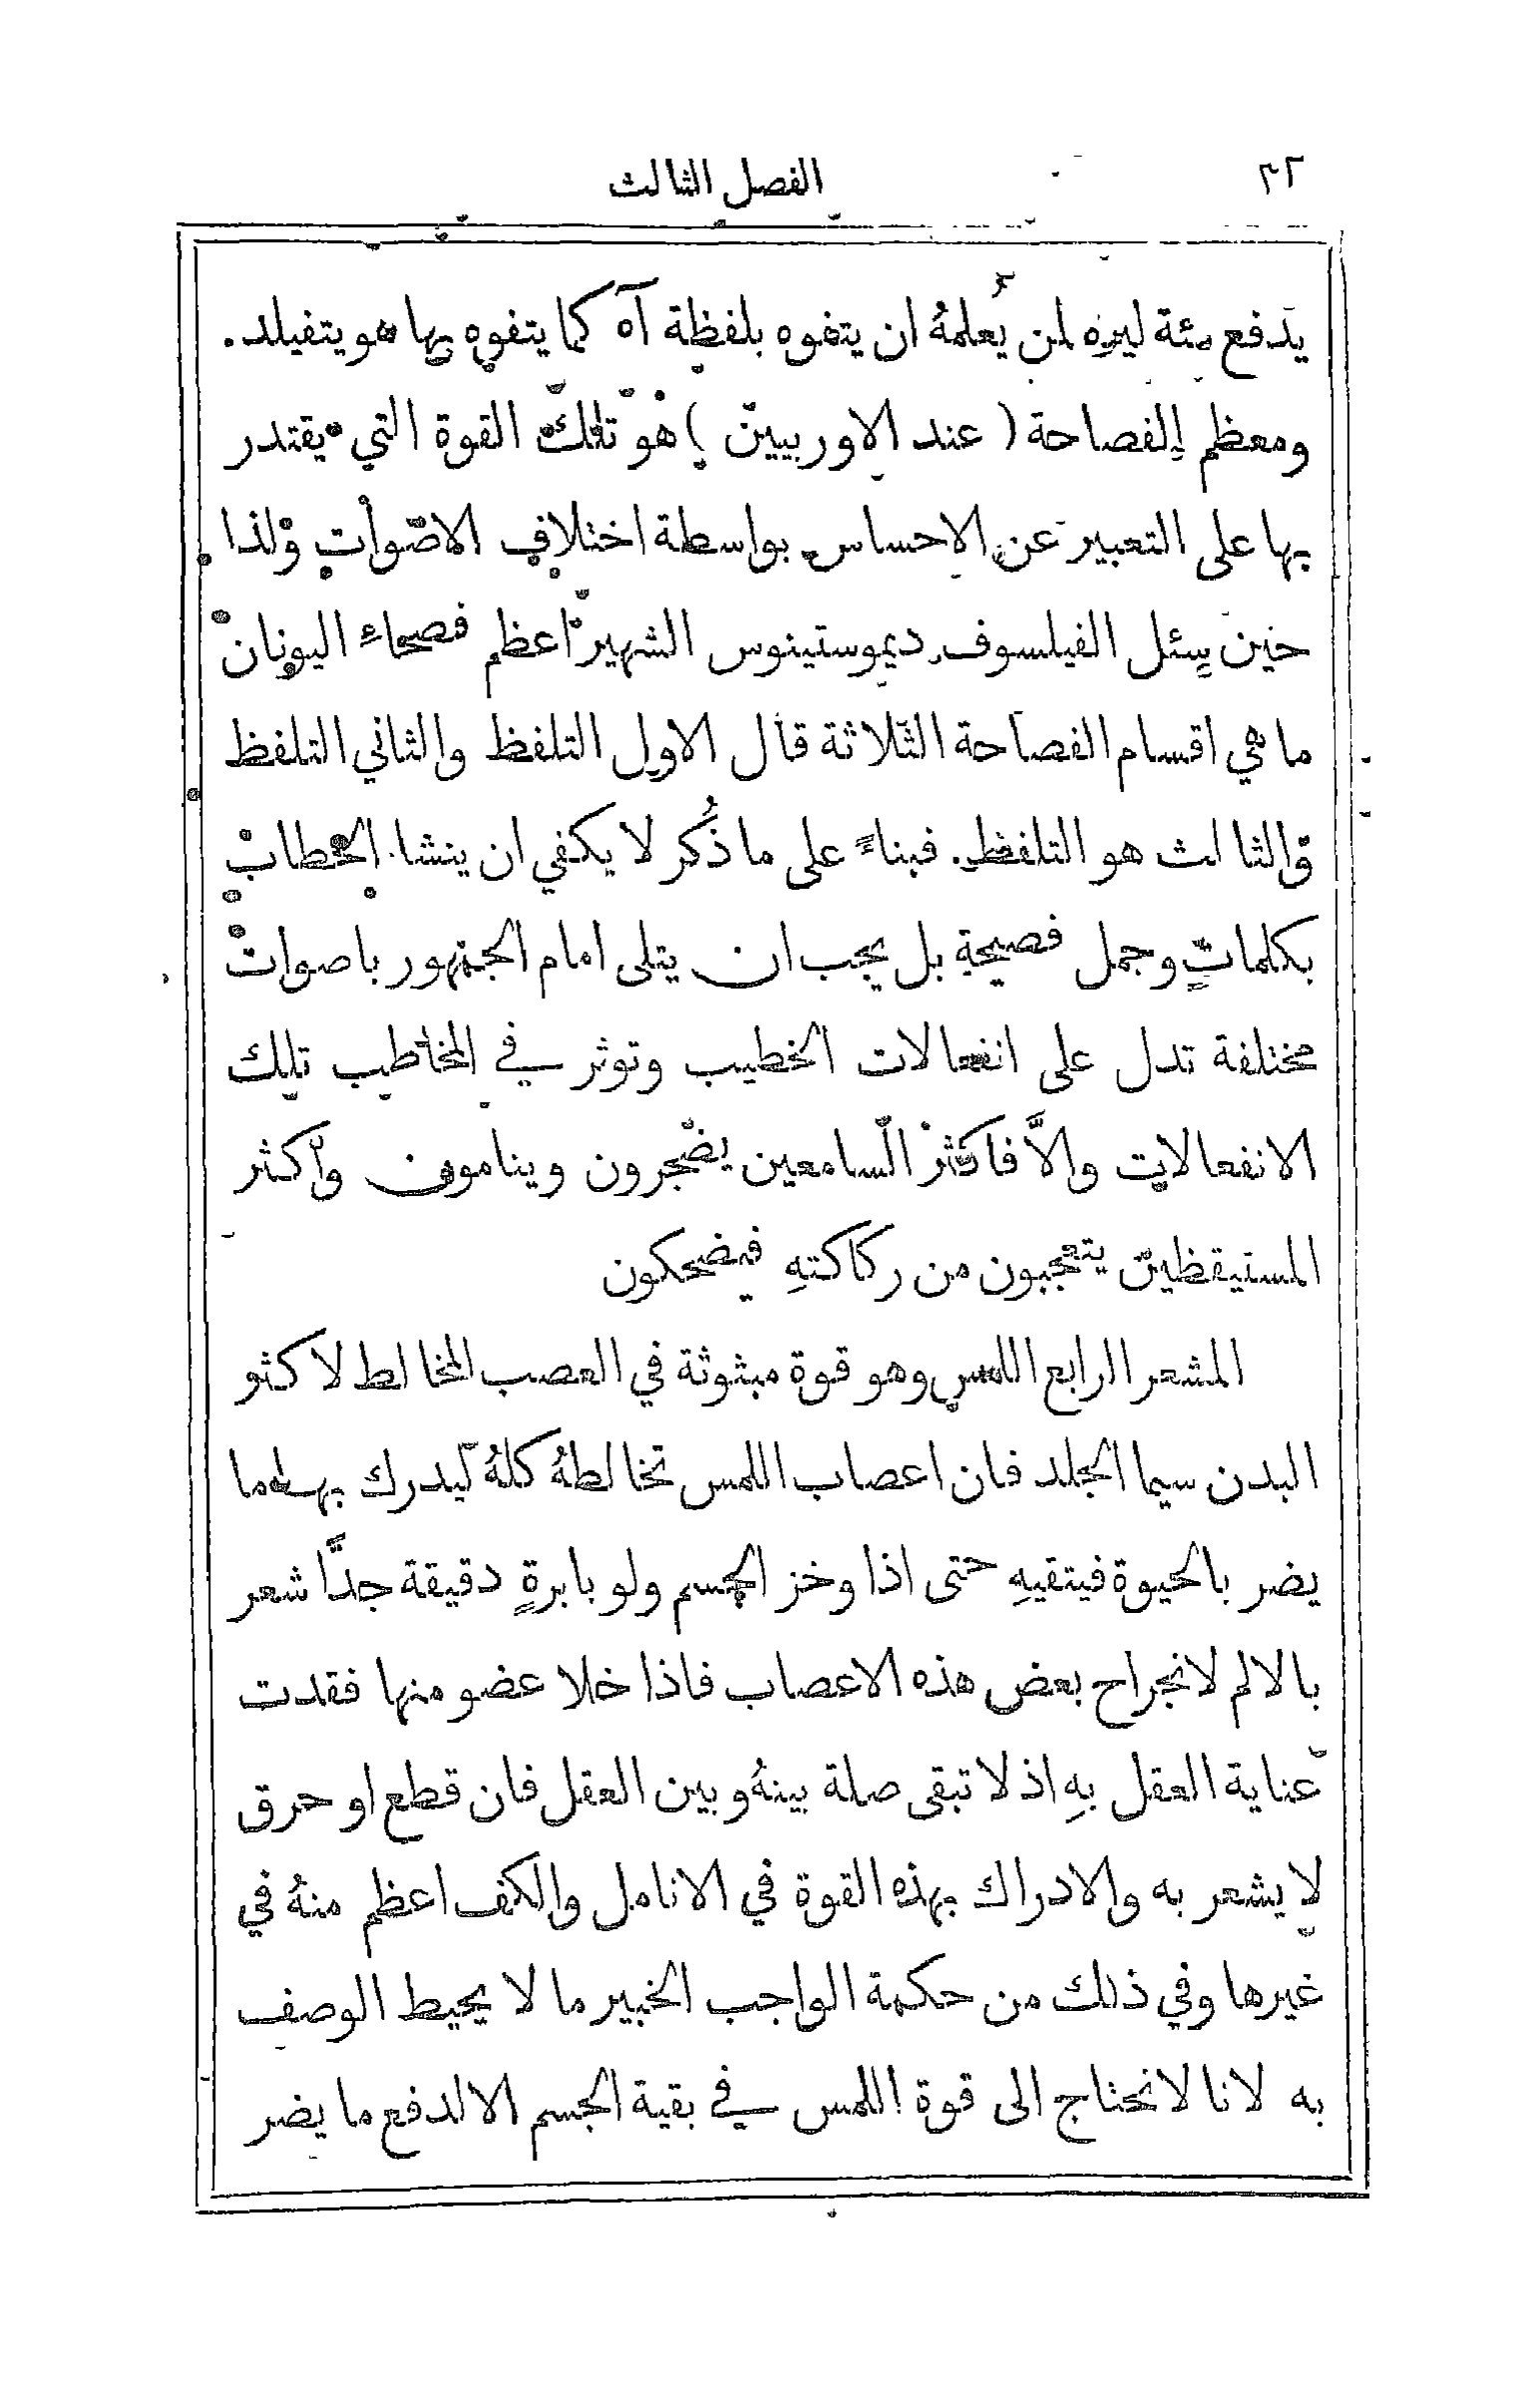 ٣٢ الفصل الثالث
يدفع مئة ليره لمن يُعلمهُ ان يتفوه بلفظة آه كما يتفوه بها هويتفيلد.
ومعظم الفصاحة ( عند الاوربيين ) هو تلك القوة التي يقتدر
بها على التعبير عن الاحساس بواسطة اختلاف الاصوات ولذا
حين سئل الفيلسوف ديموستينوس الشهير اعظم فصحاءِ اليونان
ما هي اقسام الفصاحة الثلاثة قال الاول التلفظ والثاني التلفظ
والثالث هو التلفظ. فبناءً على ما ذُكر لا يكفي ان ينشا الخطاب
بكلماتٍ وجمل فصيحةٍ بل يجب ان يتلى امام الجمهور باصوات
مختلفة تدل على انفعالات الخطيب وتوثر في المخاطب تلك
الانفعالات والاَّ فاكثر السامعين يضجرون وينامون واكثر
المستيقظين يتعجبون من ركاكتهِ فيضحكون
المشعر الرابع اللمس وهو قوة مبثوثة في العصب المخالط لاكثر
البدن سيما الجلد فان اعصاب اللمس تخالطهُ كلهُ ليدرك بها ما
يضر بالحيوة فيتقيهِ حتى اذا وخز الجسم ولو بابرةٍ دقيقة جدًّا شعر
بالالم لانجراح بعض هذه الاعصاب فاذا خلا عضو منها فقدت
عناية العقل بهِ اذ لا تبقى صلة بينهُ وبين العقل فان قطع او حرق
لا يشعر به والادراك بهذه القوة في الانامل والكف اعظم منهُ في
غيرها وفي ذلك من حكمة الواجب الخبير ما لا يحيط الوصف
به لانا لا نحتاج الى قوة اللمس في بقية الجسم الا لدفع ما يضر